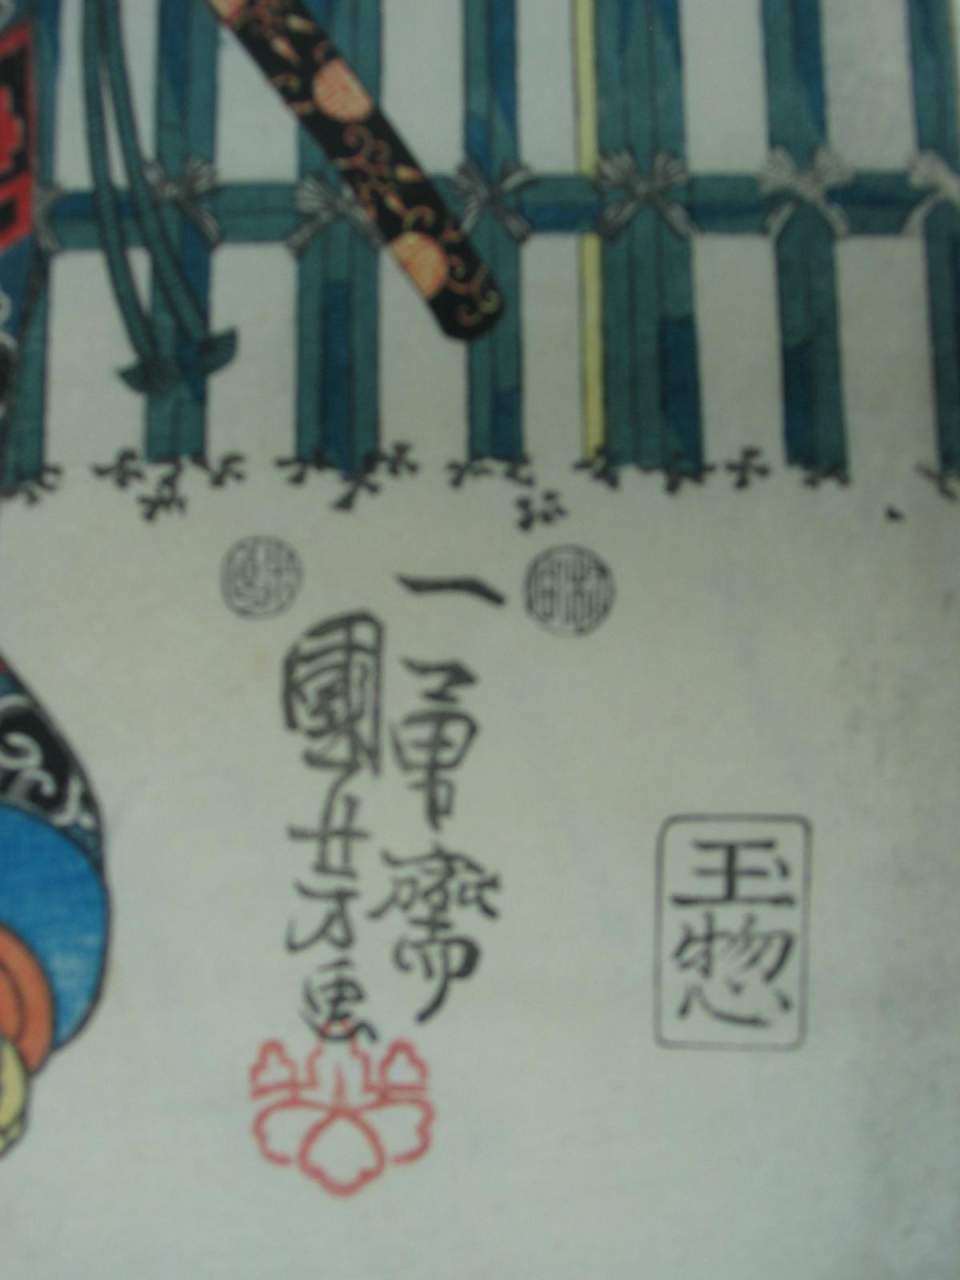 一勇齋
國芳画
玉惣